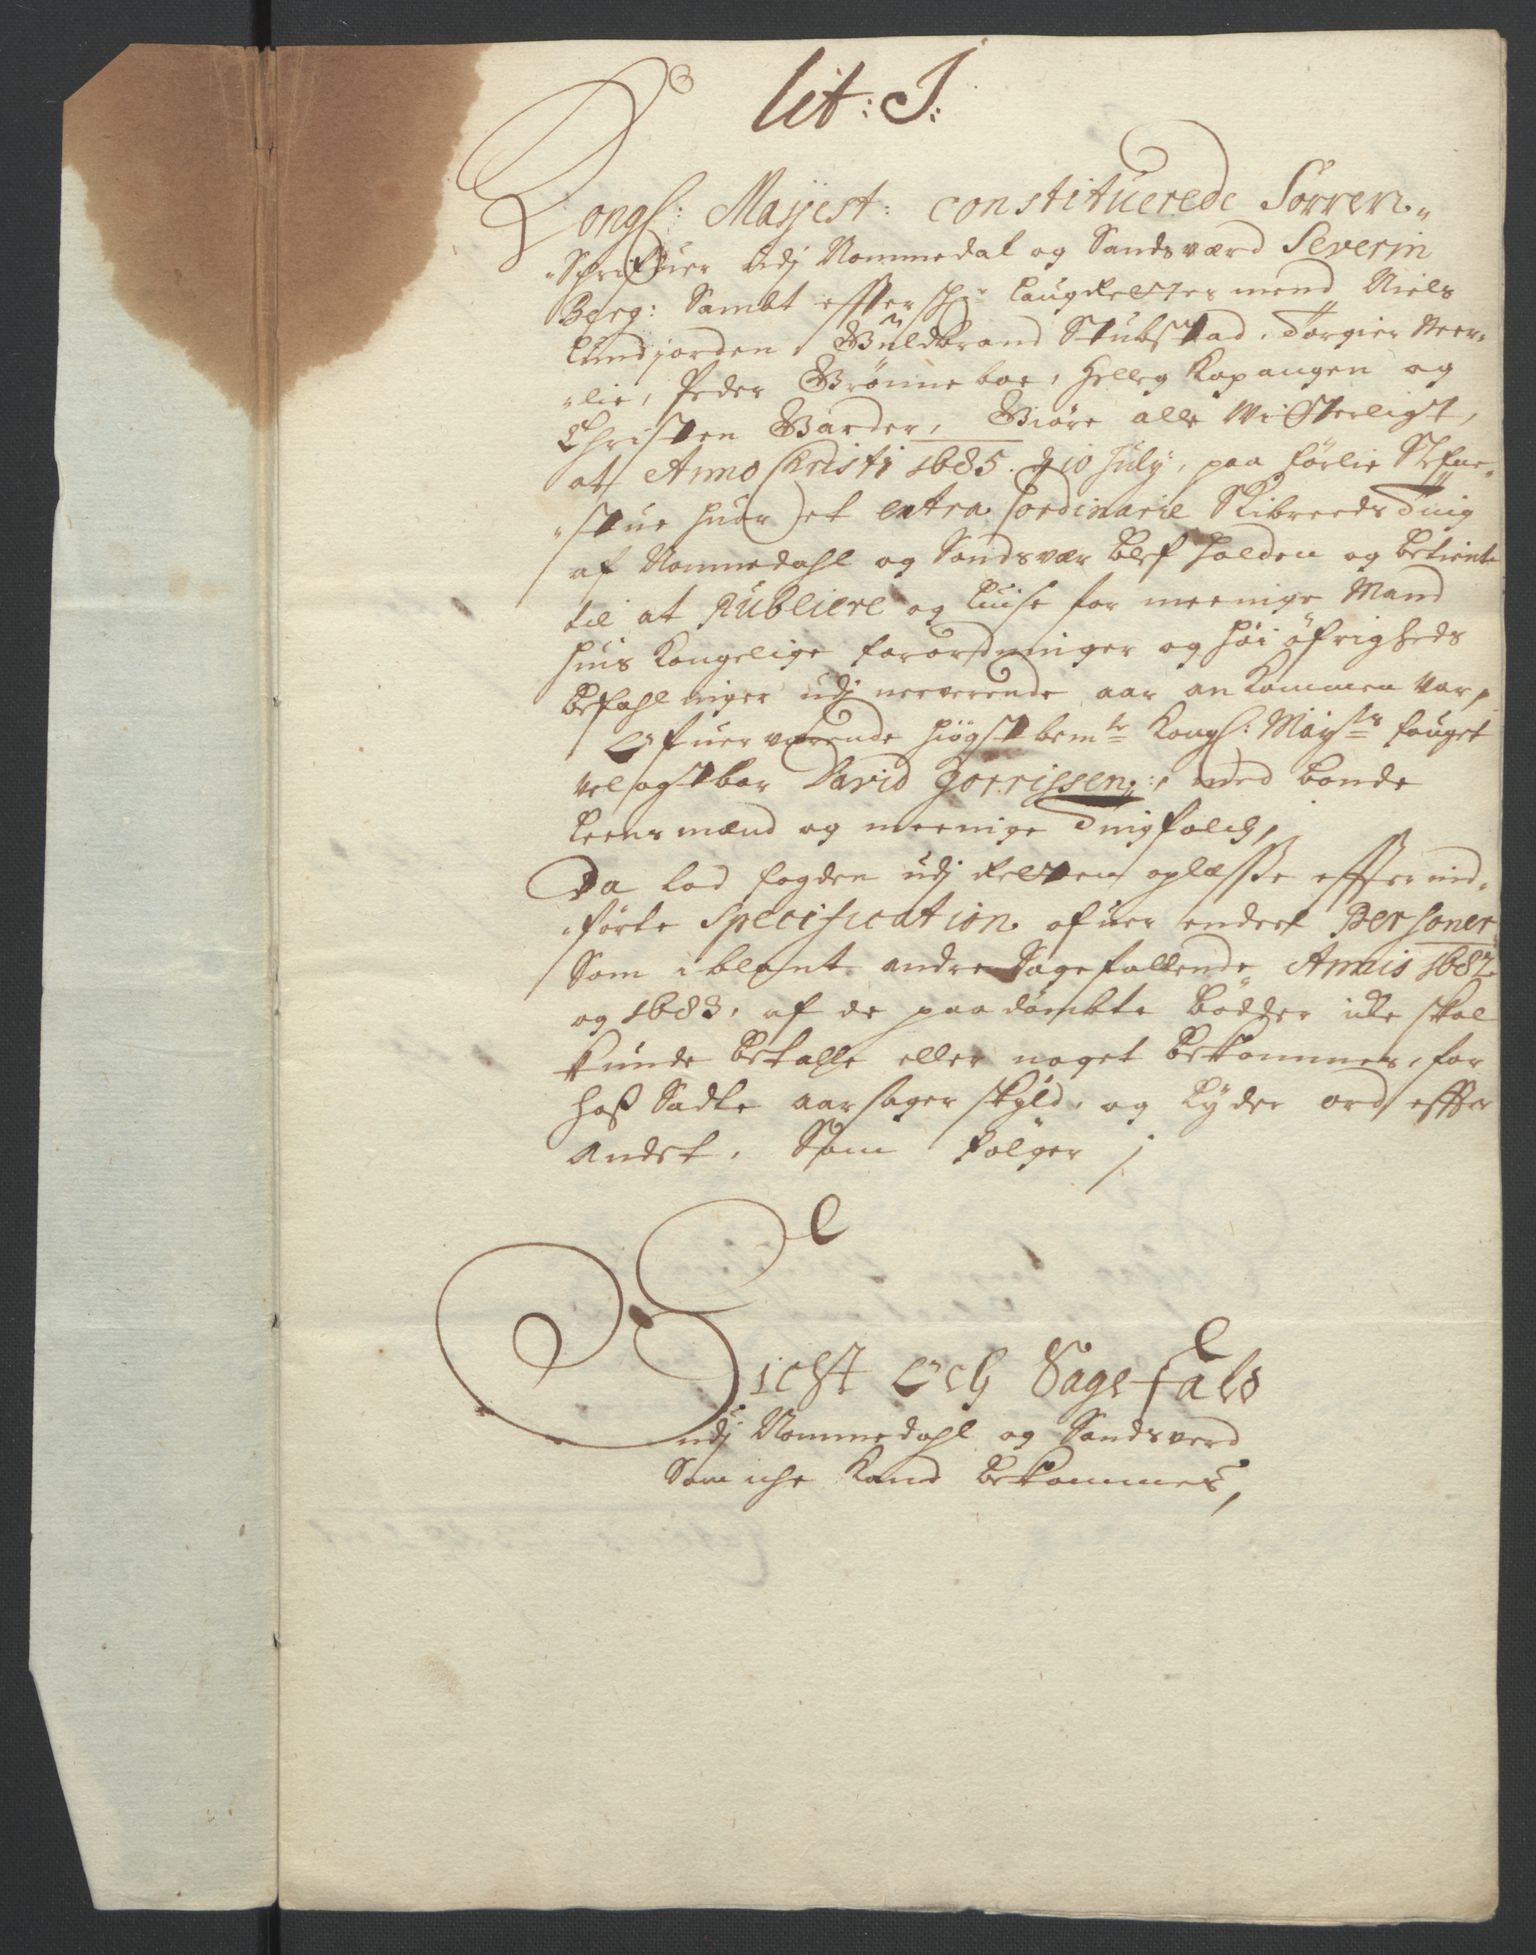 lit: J:
Kongl: Mayest: constituerede Sorren-
-Schrifuer udj Nommedal og Sandsværd Severin
Berg: Sambt effterschr: Laugrettes mend Niels
Lundjorden, Guldbrand Stubstad, Torgier Meer-
-lie, Peder Grønneboe, Helleg Kopangen og
Christen Garder, Giøre alle Witterligt,
at Anno Christi 1685. d 10 July, paa Førlie Stefne-
-stue huor et extra ordinarie Skibreeds Ting
af Nommedahl og Sandsvær blef holden og betient
til at Publicere og liuse for meenige Mand
huis Kongelige forordninger og høi Øfrigheds
befahlninger udj nerverende aar ankommen var,
Ofuerværende høigstbemte Kongl: Mayts fouget
velagtbar David Jorrissen, med bonde
Leensmænd og meenige Tingfolch,
Da lod fogden udj Retten oplæsse effterind-
-førte Specification ofuer endeel Personer
Som iblant andre Sagefallende Annis 1682
og 1683, af de paadømbte bødder icke skal
kunde betalle eller noget bekommes, for
hoß Sadte aarsager skyld, og lyder ord effter
andet, Som følger
Sicht Och Sagefald
udj Nommedahl og Sandsverd
Som iche kand bekommes,